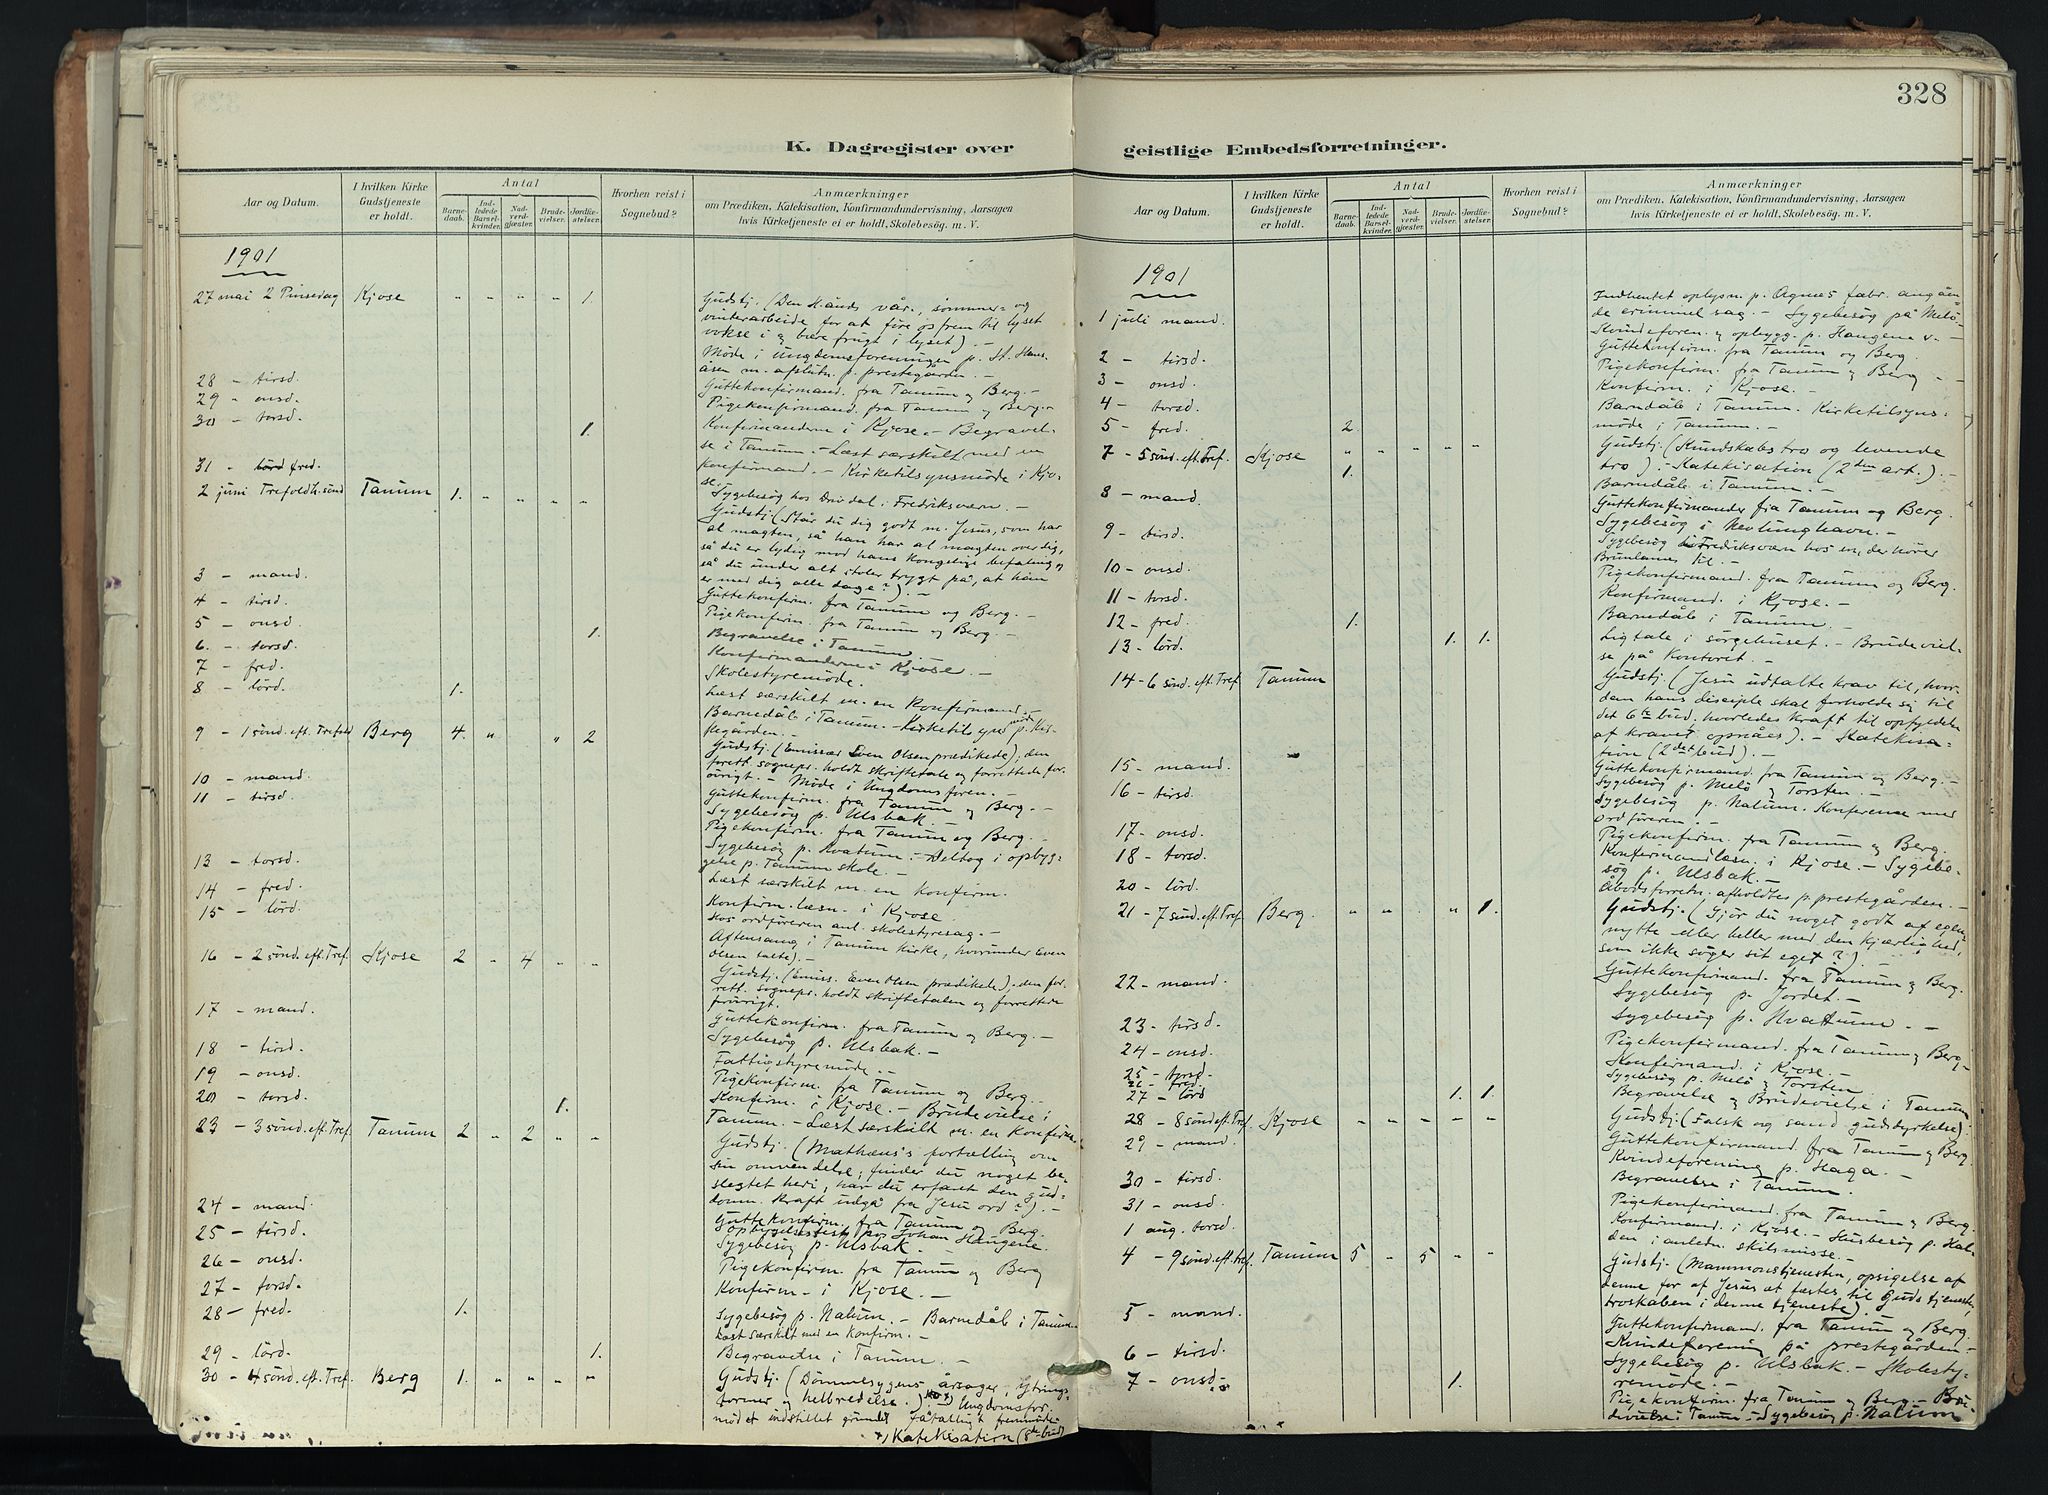 328
K. Dagregister over geistlige Embedsforretninger.
Aar og Datum.
I hvilken Kirke Gudstjeneste er holdt.
Antal
Barnedaab.
Indledede Barselkvinder.
Nadverdgjæster.
Brudevielser.
Jordfæstelser.
Hvorhen reist i Sognebud?
Anmærkninger
om Prædiken, Katekisation, Konfirmandundervisning, Aarsagen
hvis Kirketjeneste ei er holdt, Skolebesög. m. V.
1901
27 mai 2 Pinsedag Kjose " " " " 1.
Gudstj. (Den H. ånds vår-, sommer- og
vinterarbeide for at føre os frem til lyset
vokse i og bære frugt i lyset). -
Møde i Ungdomsforeningen p. St. Hans-
åsen m. afslutn. p. prestegården. -
28 - tirsd.
Guttekonfirmand. fra Tanum og Berg. -
29 - onsd.
Pigekonfirmand. fra Tanum og Berg. -
30 - torsd. 1.
Konfirmanderne i Kjose. - Begravel-
se i Tanum. - Læst særskilt med en
31 - fred.
konfirmand. - Kirketilsynsmøde i Kjo-
se.
2 juni Trefoldh. sönd Tanum 1. " " " "
Sygebesøg hos Drivdal i Fredriksværn. -
Gudstj. (Står du dig godt m. Jesus, som har
al magten, så han har al magten over dig,
så du er lydig mod hans kongelige befaling og
så du under alt stoler trygt på, at han
er med dig alle dage?). -
3 - mand.
Guttekonfirm. fra Tanum og Berg. -
4 - tirsd.
Pigekonfirm. fra Tanum og Berg. -
5 - onsd. 1.
Begravelse i Tanum. -
6 - torsd.
Konfirmanderne i Kjose. -
7 - fred.
Skolestyremøde.
8 - lörd. 1.
Læst særskilt m. en Konfirmand. -
Barnedåb i Tanum. - Kirketilsynsmøde p. Kir-
kegården. -
9 - 1 sönd. eft. Trefold Berg 4. " " 2
Gudstj. (Emissær Even Olsen prædikede); den
forrett. sognepr. holdt skriftetale og forrettede for-
øvrigt. - Møde i Ungdomsforen. -
10 - mand.
Guttekonfirm. fra Tanum og Berg. -
11 - tirsd.
Sygebesøg p. Ulsbak. -
Pigekonfirm. fra Tanum og Berg. -
13 - torsd.
Sygebesøg p. Kvatum. - Deltog i opbyg-
gelse p. Tanum skole. -
14 - fred.
Læst særskilt m. en Konfirm.
15 - lörd.
Konfirm. læsn. i Kjose.
Hos ordføreren anl. skolestyresag. -
Aftensang i Tanum Kirke, hvorunder Even
Olsen talte). -
16 - 2 sönd. eft. Tref. Kjose 2 " 4 " "
Gudstj. (Emiss. Even Olsen prædikede). den for-
rett. sognepr. holdt skriftetalen og forrettede
forøvrigt.
17 - mand.
Guttekonfirm. fra Tanum og Berg. -
18 - tirsd.
Sygebesøg p. Ulsbak. -
Fattigstyremøde. -
19 - onsd.
Pigekonfirm. fra Tanum og Berg. -
20 - torsd. 1.
Konfirm. i Kjose. - Brudevielse i
Tanum. - Læst særskilt m. en Konfirm.
23 - 3 sönd. eft. Tref. Tanum 2 " 2 " "
Gudstj. (Mathæus's fortælling om
sin omvendelse; finder du noget be-
slegtet heri, har du erfaret den gud-
domm. kraft udgå fra Jesu ord?). -
24 - mand.
Guttekonfirm. fra Tanum og Berg.
25 - tirsd.
Johan Haugene.
Sygebesøg p. Ulsbak. -
26 - onsd.
Pigekonfirm. fra Tanum og Berg
27 - torsd.
Konfirm. - i Kjose. -
28 - fred. 1.
Sygebesøg p. Nalum. - Barnedåb i Tanum. -
Læst særskilt med en Konfirm. -
29 - lörd. 1.
Begravelse i Tanum. -
30 - 4 sönd. eft. Tref. Berg 1. " " "
Gudstj. (Dømmesygens årsager, ytrings-
former og helbredelse.) x) - Ungdomsfor.
mødet indstillet grundet fåtalligt fremmøde.
x) Katekisation (8de bud)
Aar og Datum.
I hvilken Kirke Gudstjeneste er holdt.
Antal
Barnedaab.
Indledede Barselkvinder.
Nadverdgjæster.
Brudevielser.
Jordfæstelser.
Hvorhen reist i Sognebud?
Anmærkninger
om Prædiken, Katekisation, Konfirmandundervisning, Aarsagen
hvis Kirketjeneste ei er holdt, Skolebesög. m. V.
1901
1 juli mand.
Indhentet oplysn. p. Agnes fabr. angåen-
de criminel sag. - Sygebesøg på Melö-
Kvindeforen. og opbygg. p. Haugene v. -
2 - tirsd.
Guttekonfirm. fra Tanum og Berg.
3 - onsd.
Pigekonfirm. fra Tanum og Berg -
4 - torsd.
Konfirm. i Kjose. -
5 - fred. 2
Barnedåb i Tanum. Kirketilsyns-
møde i Tanum. -
7 - 5 sönd. eft. Tref. Kjose " " " " "
1.
Gudstj. (Kundskabstro og levende
tro). - Katekisation (2den art.). -
Barnedåb i Tanum. -
8 - mand
Guttekonfirmander fra Tanum og Berg.
Sygebesøg i Nevlunghavn. -
9 - tirsd.
Sygebesøg i Fredriksværn hos en, der hører
Brunlanes til. -
10 - onsd.
Pigekonfirmand. fra Tanum og Berg.
11 - torsd.
Konfirmand. i Kjose. -
12 - fred. 1.
Barnedåb i Tanum. -
13 - lörd. 1. 1.
Ligtale i sørgehuset. - Brudeviel-
se på kontoret. -
14 - 6 sönd. eft. Tref Tanum
Gudstj. (Jesu udtalte krav til, hvor-
dam hans disciple skal forholde sig til
det 6te bud. hvorledes kraft til opfyldelse
af kravet opnåes). - Katekisa-
tion (2det bud). -
15 - mand.
Guttekonfirmand. fra Tanum og Berg. -
Sygebesøg p. Melö og Torsten. -
16 - tirsd.
Sygebesøg p. Nalum. Konference med
ordføreren. -
17 - onsd.
Pigekonfirm. fra Tanum og Berg.
18 - torsd.
Konfirmandlæsn. i Kjose. - Sygebe-
søg p. Ulsbak. -
20 - lörd.
Åbodsforretn. afholdtes p. prestegården. -
21 - 7 sönd. eft. Tref. Berg. " " " 1.
Gudstj. (Gjør du noget godt af egen-
nytte eller heller med den kjærlighed,
som ikke søger sit eget?). -
22 - mand.
Guttekonfirmand. fra Tanum og Berg.
Sygebesøg p. Jordet. -
23 - tirsd.
Sygebesøg p. Kvatum. -
24 - onsd.
Pigekonfirmand. fra Tanum og Berg. -
25 - torsd.
Konfirmand. i Kjose. -
26 - fred.
Sygebesøg p. Melö og Torsten
27 - lörd 1. 1.
Begravelse og Brudevielse i Tanum
28 - 8 sönd. eft. Tref. Kjose - - - - -
Gudstj. (Falsk og sand gudsdyrkelse).
29 - mand.
Guttekonfirmand. fra Tanum og Berg.
Kvindeforening p. Haga. -
30 - tirsd.
Begravelse i Tanum.
31 - onsd.
Pigekonfirmand. fra Tanum og Berg.
1 aug. torsd.
Konfirmand. i Kjose. - Husbesøg p. Hal-
den i anledn. skilsmisse. -
4 - 9 sönd. eft. Tref. Tanum 5 - 5 " "
Gudstj. (Mammonstjenesten, opsigelse af
denne for af Jesus at fæstes til Guds tjeneste,
troskaben i denne tjeneste).
5 - mand.
Guttekonfirmand. fra Tanum og Berg.
Kvindeforening på prestegården -
6 - tirsd.
Sygebesøg p. Ulsbak. - Skolesty-
remøde. -
7 - onsd. 1.
Pigekonfirm. fra Tanum og Berg. - Bru-
devielse i Tanum. - Sygebesøg p. Nalum